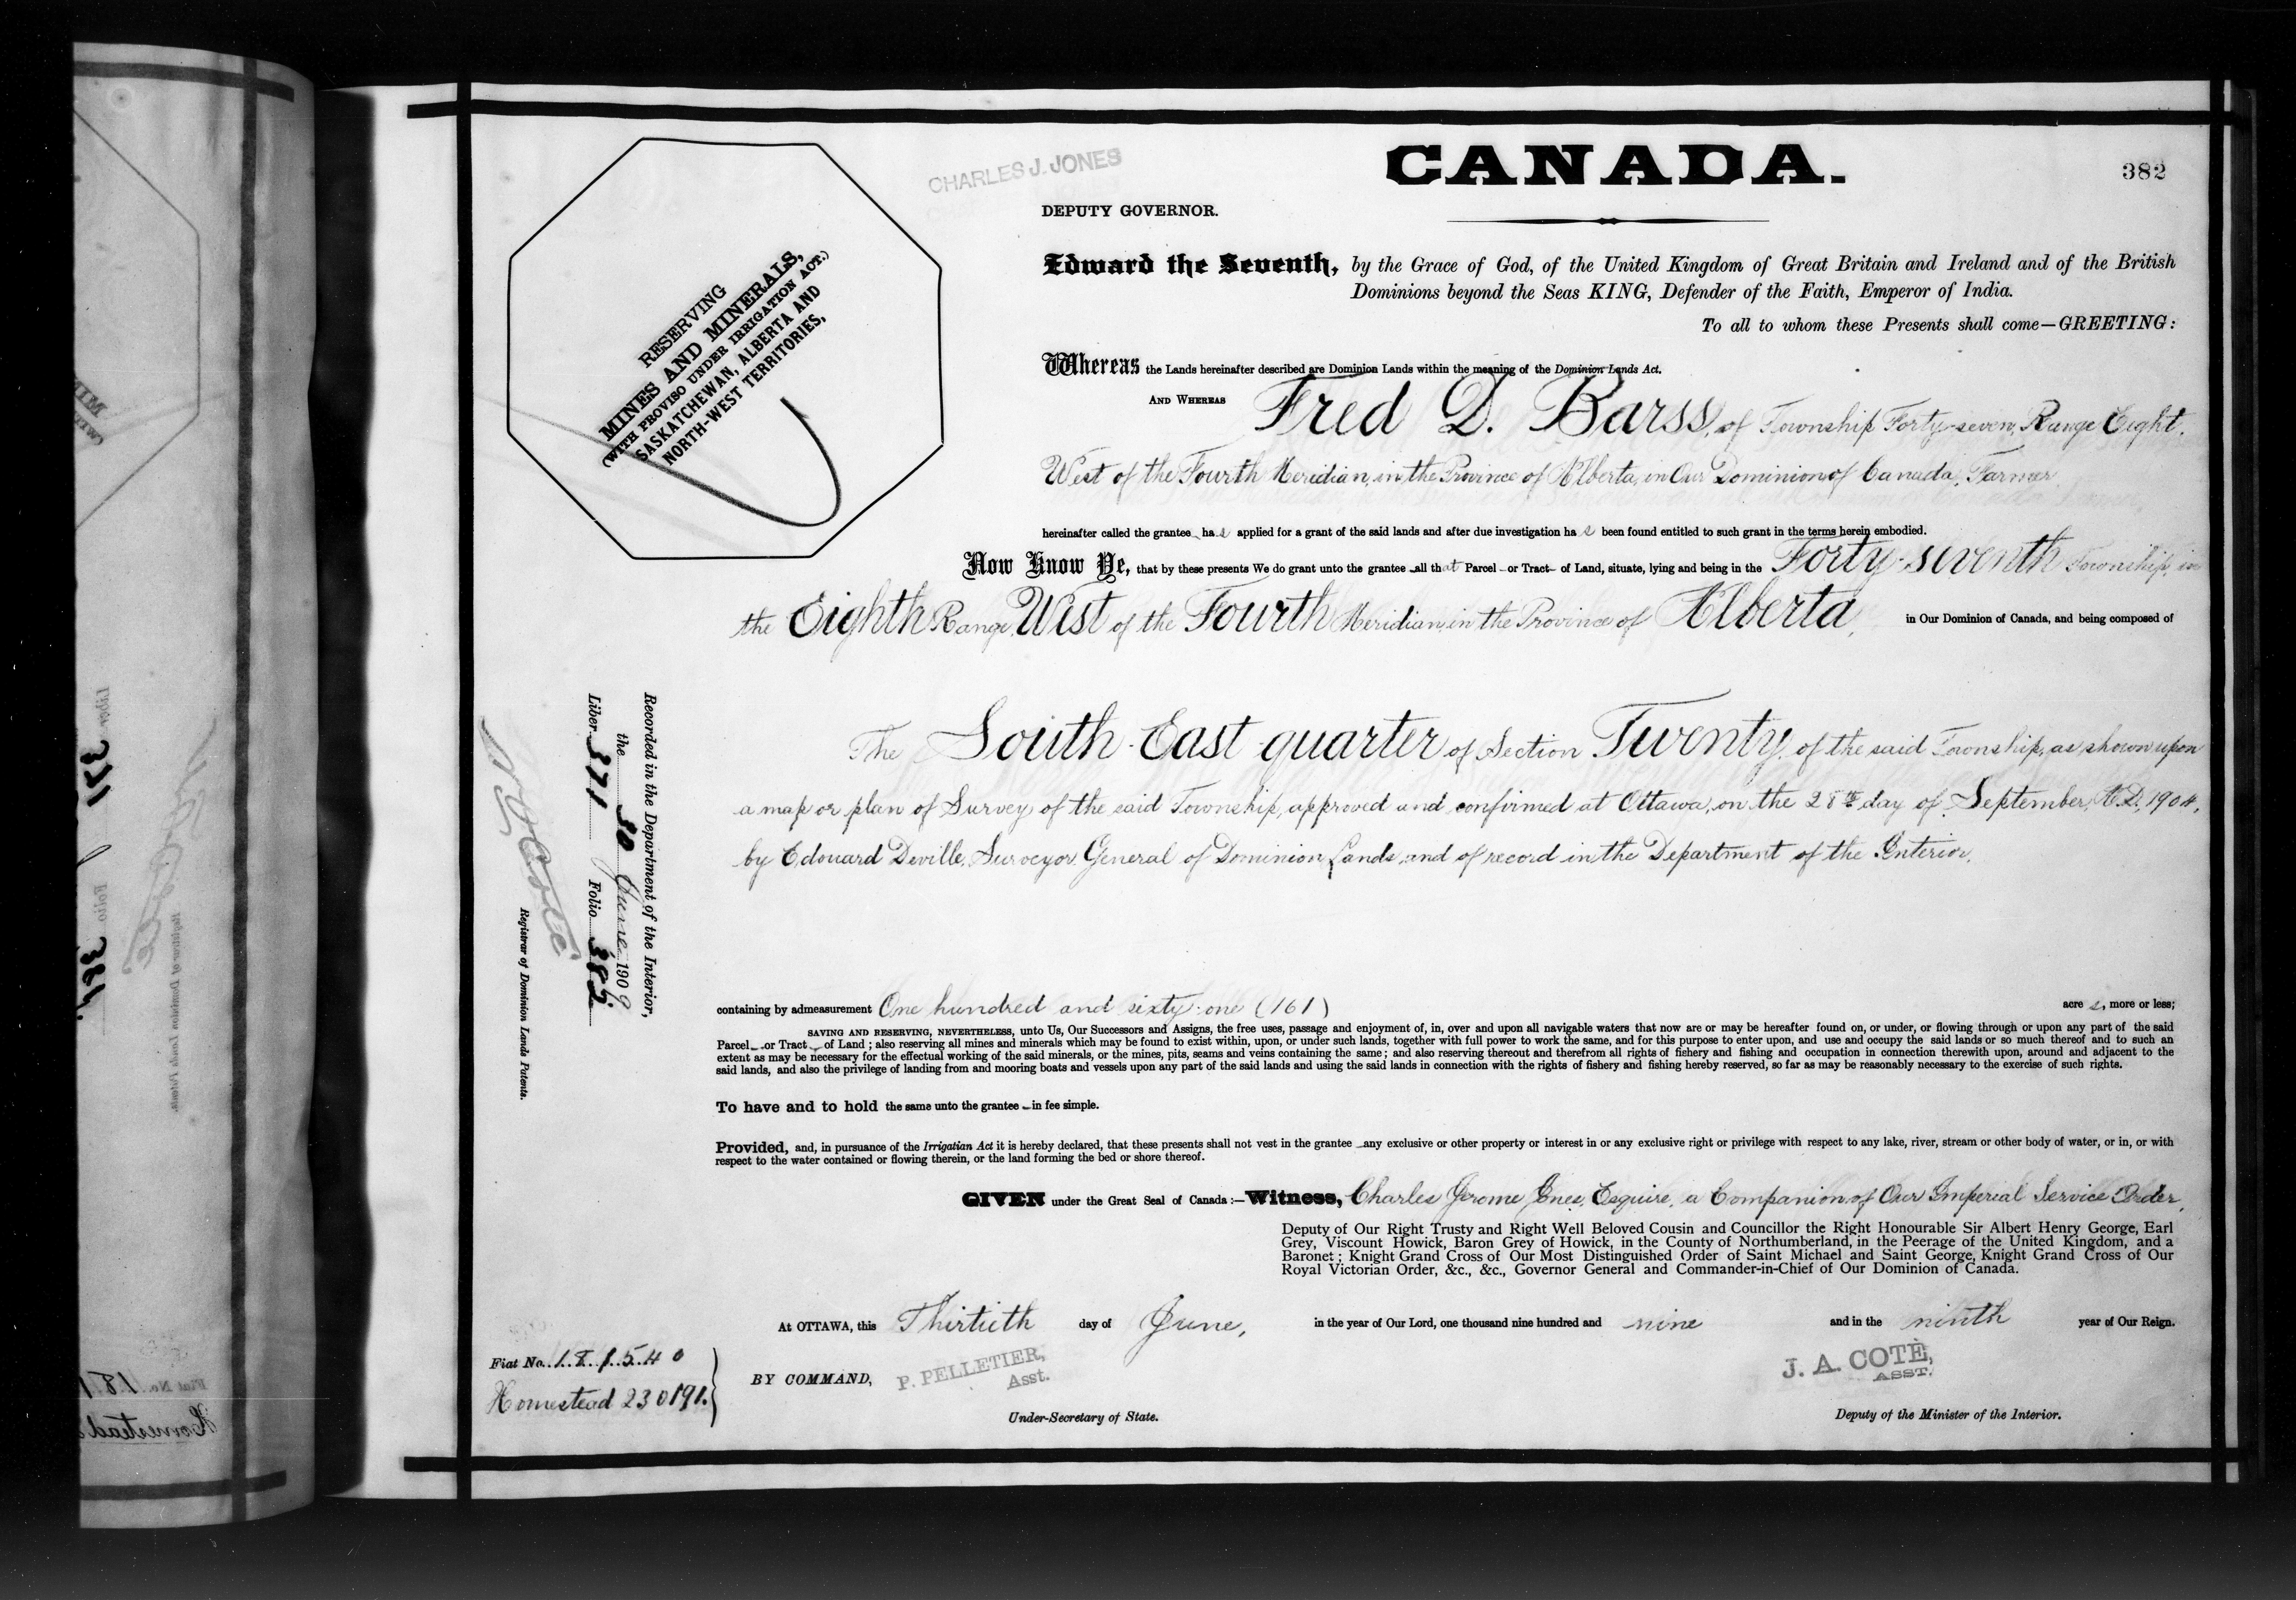 CHARLES J. JONES
CANADA.
382
DEPUTY GOVERNOR.
RESERVING
MINES AND MINERALS,
(WITH PROVISO UNDER IRRIGATION ACT.)
SASKATCHEWAN, ALBERTA AND
NORTH-WEST TERRITORIES,
Edward the Seventh, by the Grace of God, of the United Kingdom of Great Britain and Ireland and of the British
Dominions beyond the Seas KING, Defender of the Faith, Emperor of India.
To all to whom these Presents shall come—GREETING:
Whereas the Lands hereinafter described are Dominion Lands within the meaning of the Dominion Lands Act.
AND WHEREAS Fred D. Barss, of Township Forty-seven, Range Eight,
West of the Fourth Meridian, in the Province of Alberta, in Our Dominion of Canada, Farmer
hereinafter called the grantee has applied for a grant of the said lands and after due investigation has been found entitled to such grant in the terms herein embodied.
Now Know Ye, that by these presents We do grant unto the grantee all that Parcel or Tract of Land, situate, lying and being in the Forty-seventh Township, in
the Eighth Range, West of the Fourth Meridian, in the Province of Alberta, in Our Dominion of Canada, and being composed of
The South East quarter of Section Twenty, of the said Township, as shown upon
a map or plan of Survey of the said Township, approved and confirmed at Ottawa, on the 28th day of September, A.D. 1904,
by Edouard Deville, Surveyor General of Dominion Lands, and of record in the Department of the Interior.
Recorded in the Department of the Interior,
the 30 June 1909
Liber 371 Folio 382
Registrar of Dominion Lands Patents.
containing by admeasurement One hundred and sixty-one (161) acres, more or less;
SAVING AND RESERVING, NEVERTHELESS, unto Us, Our Successors and Assigns, the free uses, passage and enjoyment of, in, over and upon all navigable waters that now are or may be hereafter found on, or under, or flowing through or upon any part of the said
Parcel or Tract of Land; also reserving all mines and minerals which may be found to exist within, upon, or under such lands, together with full power to work the same, and for this purpose to enter upon, and use and occupy the said lands or so much thereof and to such an
extent as may be necessary for the effectual working of the said minerals, or the mines, pits, seams and veins containing the same; and also reserving thereout and therefrom all rights of fishery and fishing and occupation in connection therewith upon, around and adjacent to the
said lands, and also the privilege of landing from and mooring boats and vessels upon any part of the said lands and using the said lands in connection with the rights of fishery and fishing hereby reserved, so far as may be reasonably necessary to the exercise of such rights.
To have and to hold the same unto the grantee in fee simple.
Provided, and, in pursuance of the Irrigatian Act it is hereby declared, that these presents shall not vest in the grantee any exclusive or other property or interest in or any exclusive right or privilege with respect to any lake, river, stream or other body of water, or in, or with
respect to the water contained or flowing therein, or the land forming the bed or shore thereof.
GIVEN under the Great Seal of Canada:—Witness, Charles Jerome Jones, Esquire, a Companion of Our Imperial Service Order,
Deputy of Our Right Trusty and Right Well Beloved Cousin and Councillor the Right Honourable Sir Albert Henry George, Earl
Grey, Viscount Howick, Baron Grey of Howick, in the County of Northumberland, in the Peerage of the United Kingdom, and a
Baronet; Knight Grand Cross of Our Most Distinguished Order of Saint Michael and Saint George, Knight Grand Cross of Our
Royal Victorian Order, &c., &c., Governor General and Commander-in-Chief of Our Dominion of Canada.
At OTTAWA, this Thirtieth day of June, in the year of Our Lord, one thousand nine hundred and nine and in the ninth year of Our Reign.
Fiat No. 181540
Homestead 230191.
BY COMMAND,
P. PELLETIER,
Asst.
Under-Secretary of State.
J. A. COTÉ,
ASST.
Deputy of the Minister of the Interior.